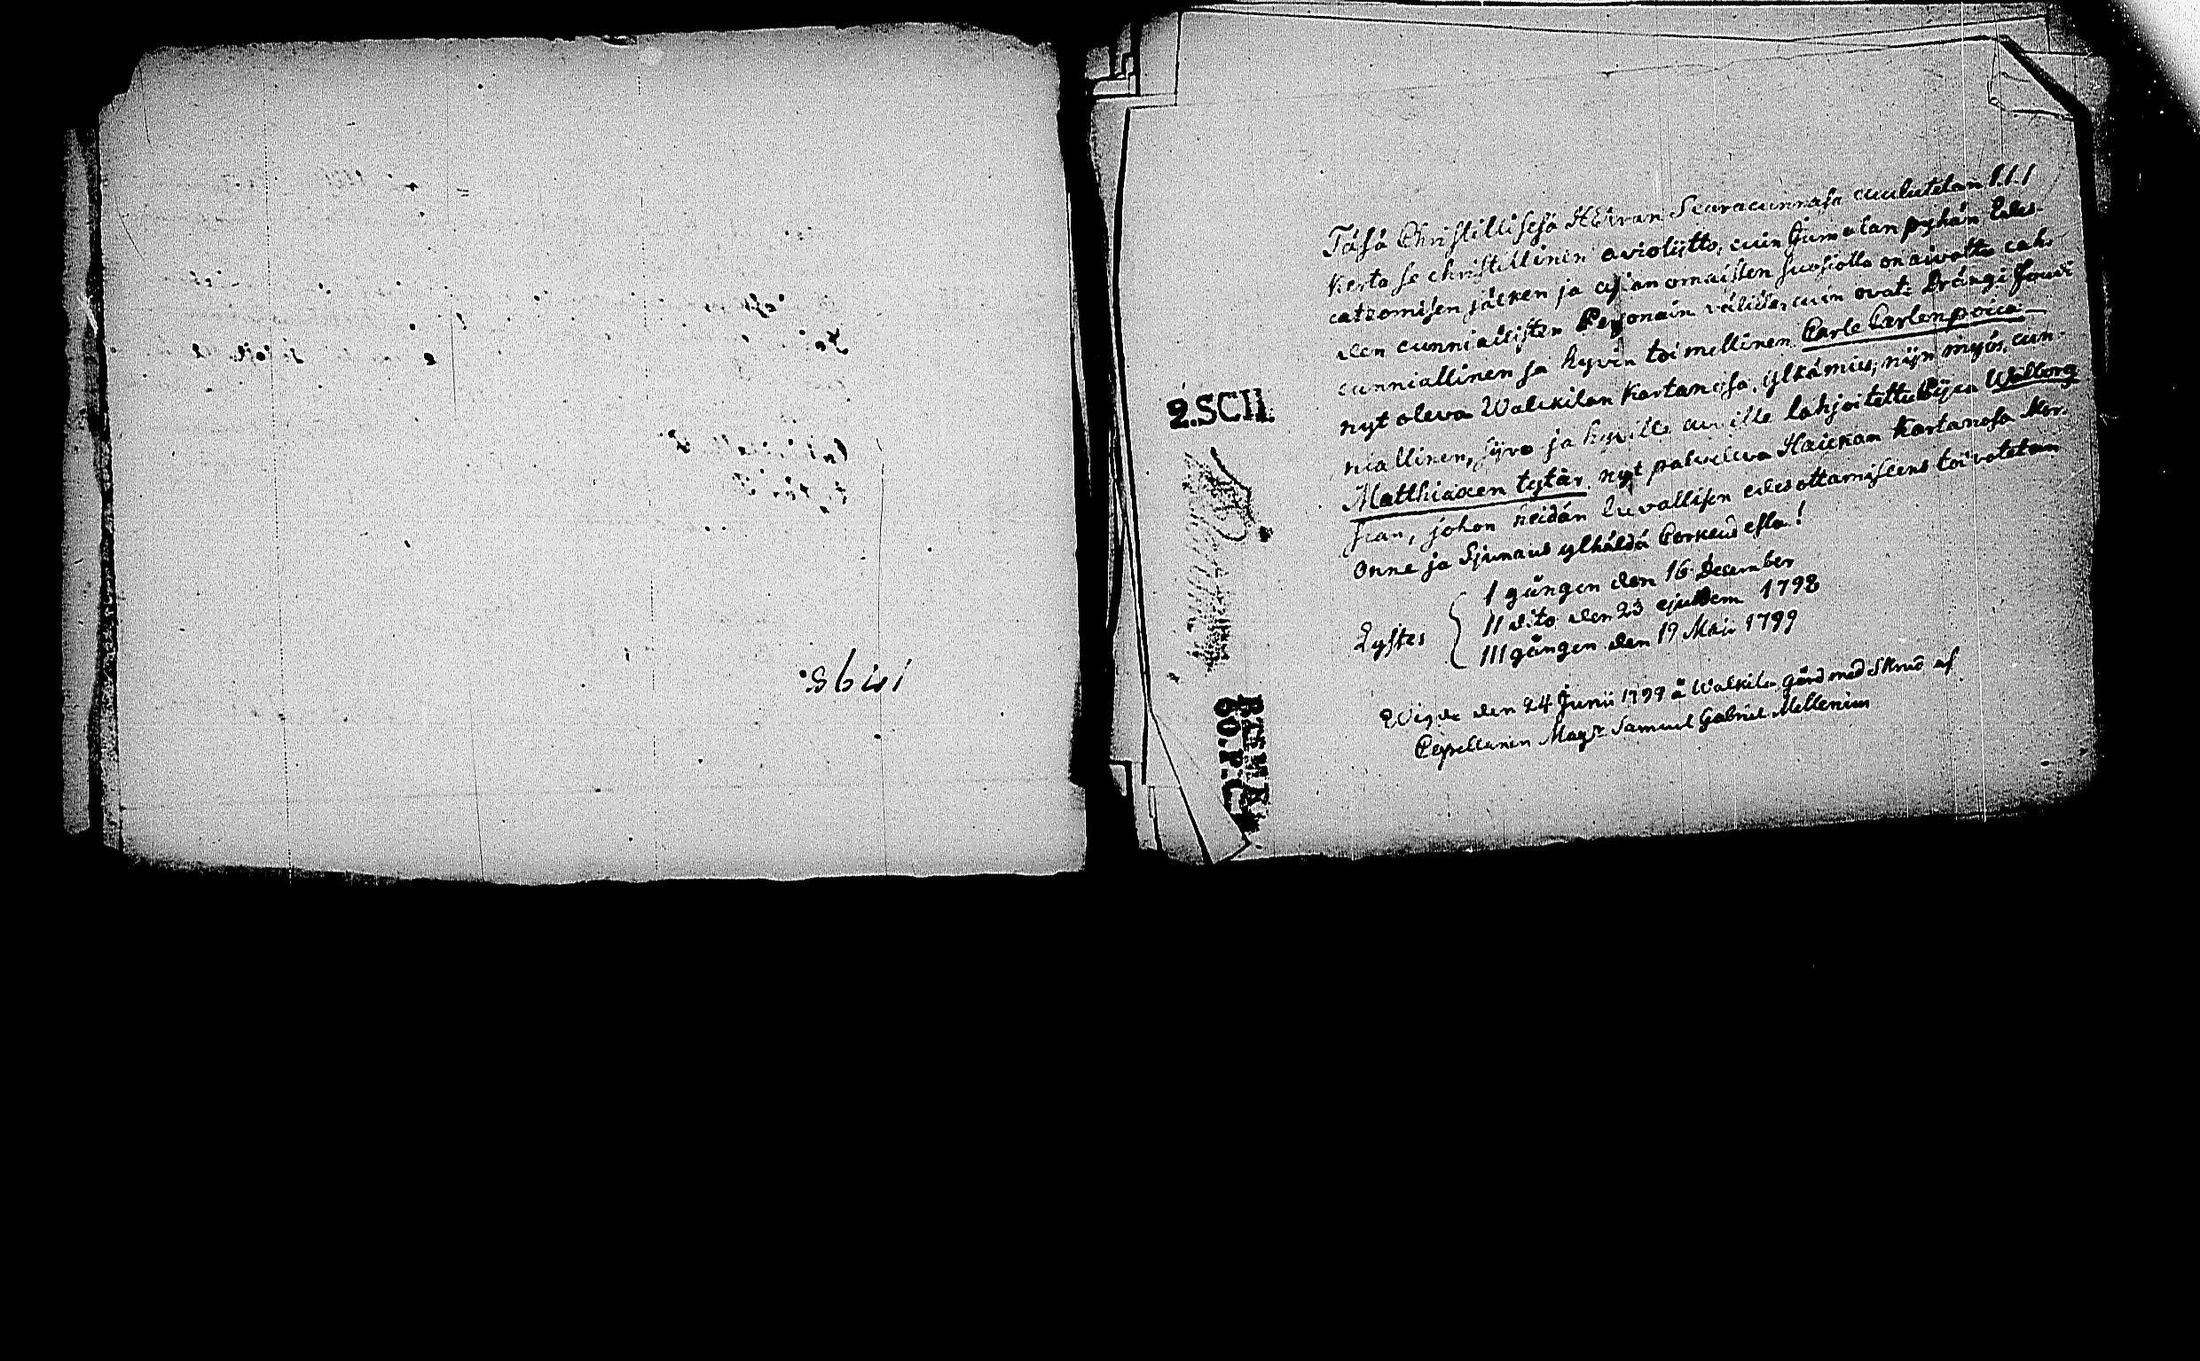 Täsä Christillisesä HERran Seuracunnasa cuulutetan 1.1.1
kerta se christillinen avioljitto, cuin Jumalan pyhän Edes-
catzomisen jälken ja asianomaisten suosiolla on aivottu cah-
den cunniallisten Personain välillä, cuin ovat: Drängi
cunniallinen ja hyvin toimellinen Carle Carlenpoica
nyt oleva Walckilan Kartanosa, ylkämies, nijn myös cun-
niallinen, sijvo ja hyvillä avuilla lahjoitettu Pijca Walborg
Matthiaxen tytär, nyt palveleva Haickan Kartanosa Mor-
sian, johon heidän luvallisen edesottamiseens toivotetan
Onne ja Sjunaus ylhäldä Corkeudesta!
Lystes
I gången den 16 December
II dito den 23 ejusdem 1798
III gången den 19 Maji 1799
Wigde den 24 Junii 1799 å Walkila gård med Skrud af
Capellanen Mag:r Samuel Gabriel Mellenius
2.SCH.